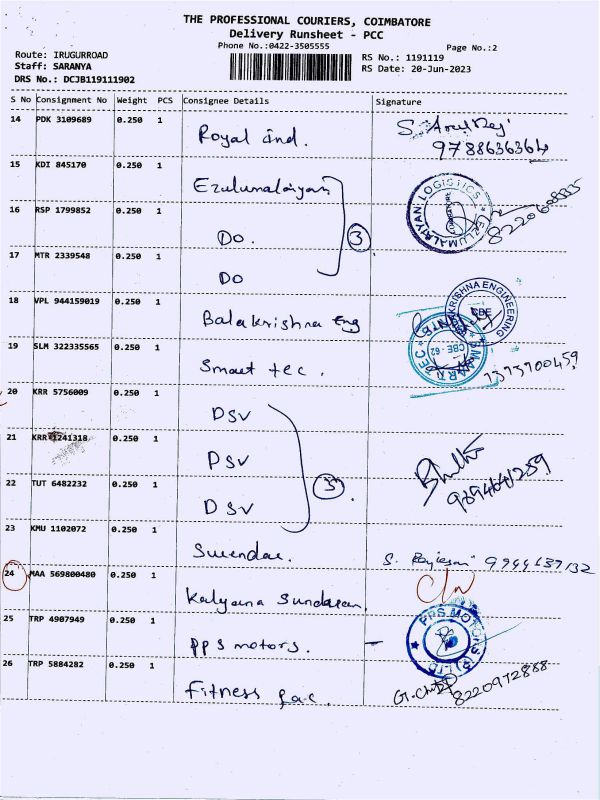 THE PROFESSIONAL COURIERS, COIMBATORE
Delivery Runsheet - PCC
Phone No.:0422-3505555
Page No.:2
Route: IRUGURROAD
Staff: SARANYA
DRS No.: DCJB119111902
RS No.: 1191119
RS Date: 20-Jun-2023
S No Consignment No Weight PCS Consignee Details Signature
14 PDK 3109689 0.250 1 Royal ind. S. 9788636364
15 KDI 845170 0.250 1 Ezulumalaiyan
EZLUMALAIYAN LOGISTICS
16 RSP 1799852 0.250 1 Do. 3
17 MTR 2339548 0.250 1 Do
18 VPL 944159019 0.250 1 Balakrishna Eng
KRISHNA ENGINEERING
CBE
19 SLM 322335565 0.250 1 Smart tec.
SMART TEC
CBE - 62
20 KRR 5756009 0.250 1 DSV
21 KRR 1241318 0.250 1 DSV
22 TUT 6482232 0.250 1 DSV 3
23 KMU 1102072 0.250 1 Surendar. S.
24 MAA 569800480 0.250 1 Kalyana Sundaram
25 TRP 4907949 0.250 1 PPS motors.
26 TRP 5884282 0.250 1 Fitness 8220972888